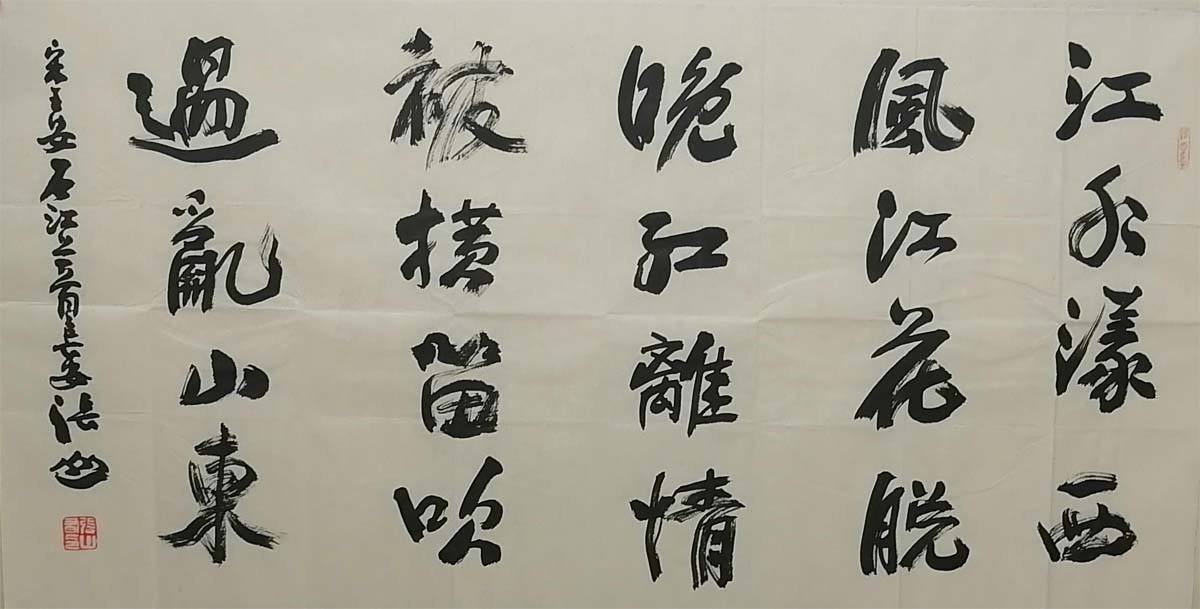 江水漾西
風江花脱
晚紅離情
被横笛吹
過亂山東
宋王安石江上一首長安張